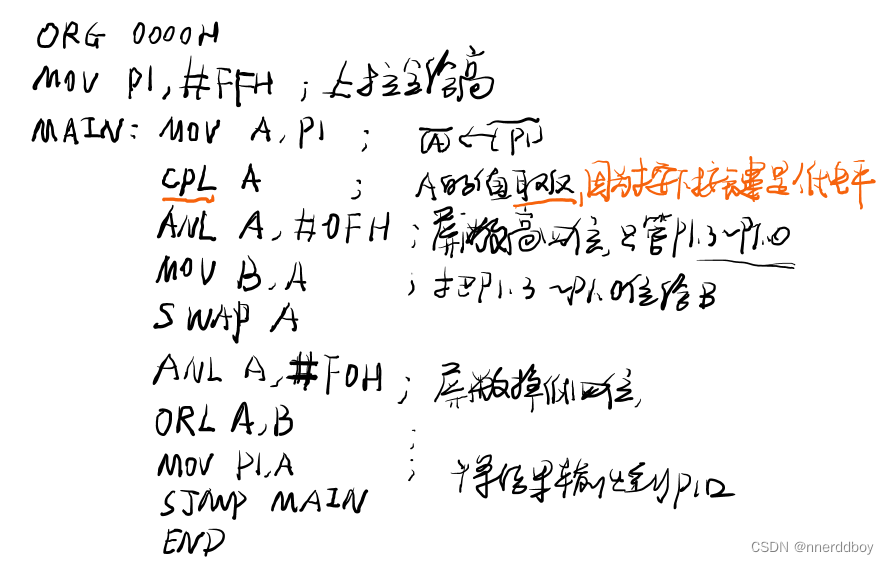 ORG 0000H
MOV P1,#FFH ; 上拉全给高
MAIN: MOV A,P1 ; (A)←(P1)
CPL A ; A的值取反,因为按下按键是低电平
ANL A,#0FH ; 屏蔽高四位,只管P1.3~P1.0
MOV B,A ; 把P1.3~P1.0位给B
SWAP A
ANL A,#F0H ; 屏蔽掉低四位,
ORL A,B ;
MOV P1,A ; 将结果输出到P1口
SJMP MAIN
END
CSDN @nnerddboy